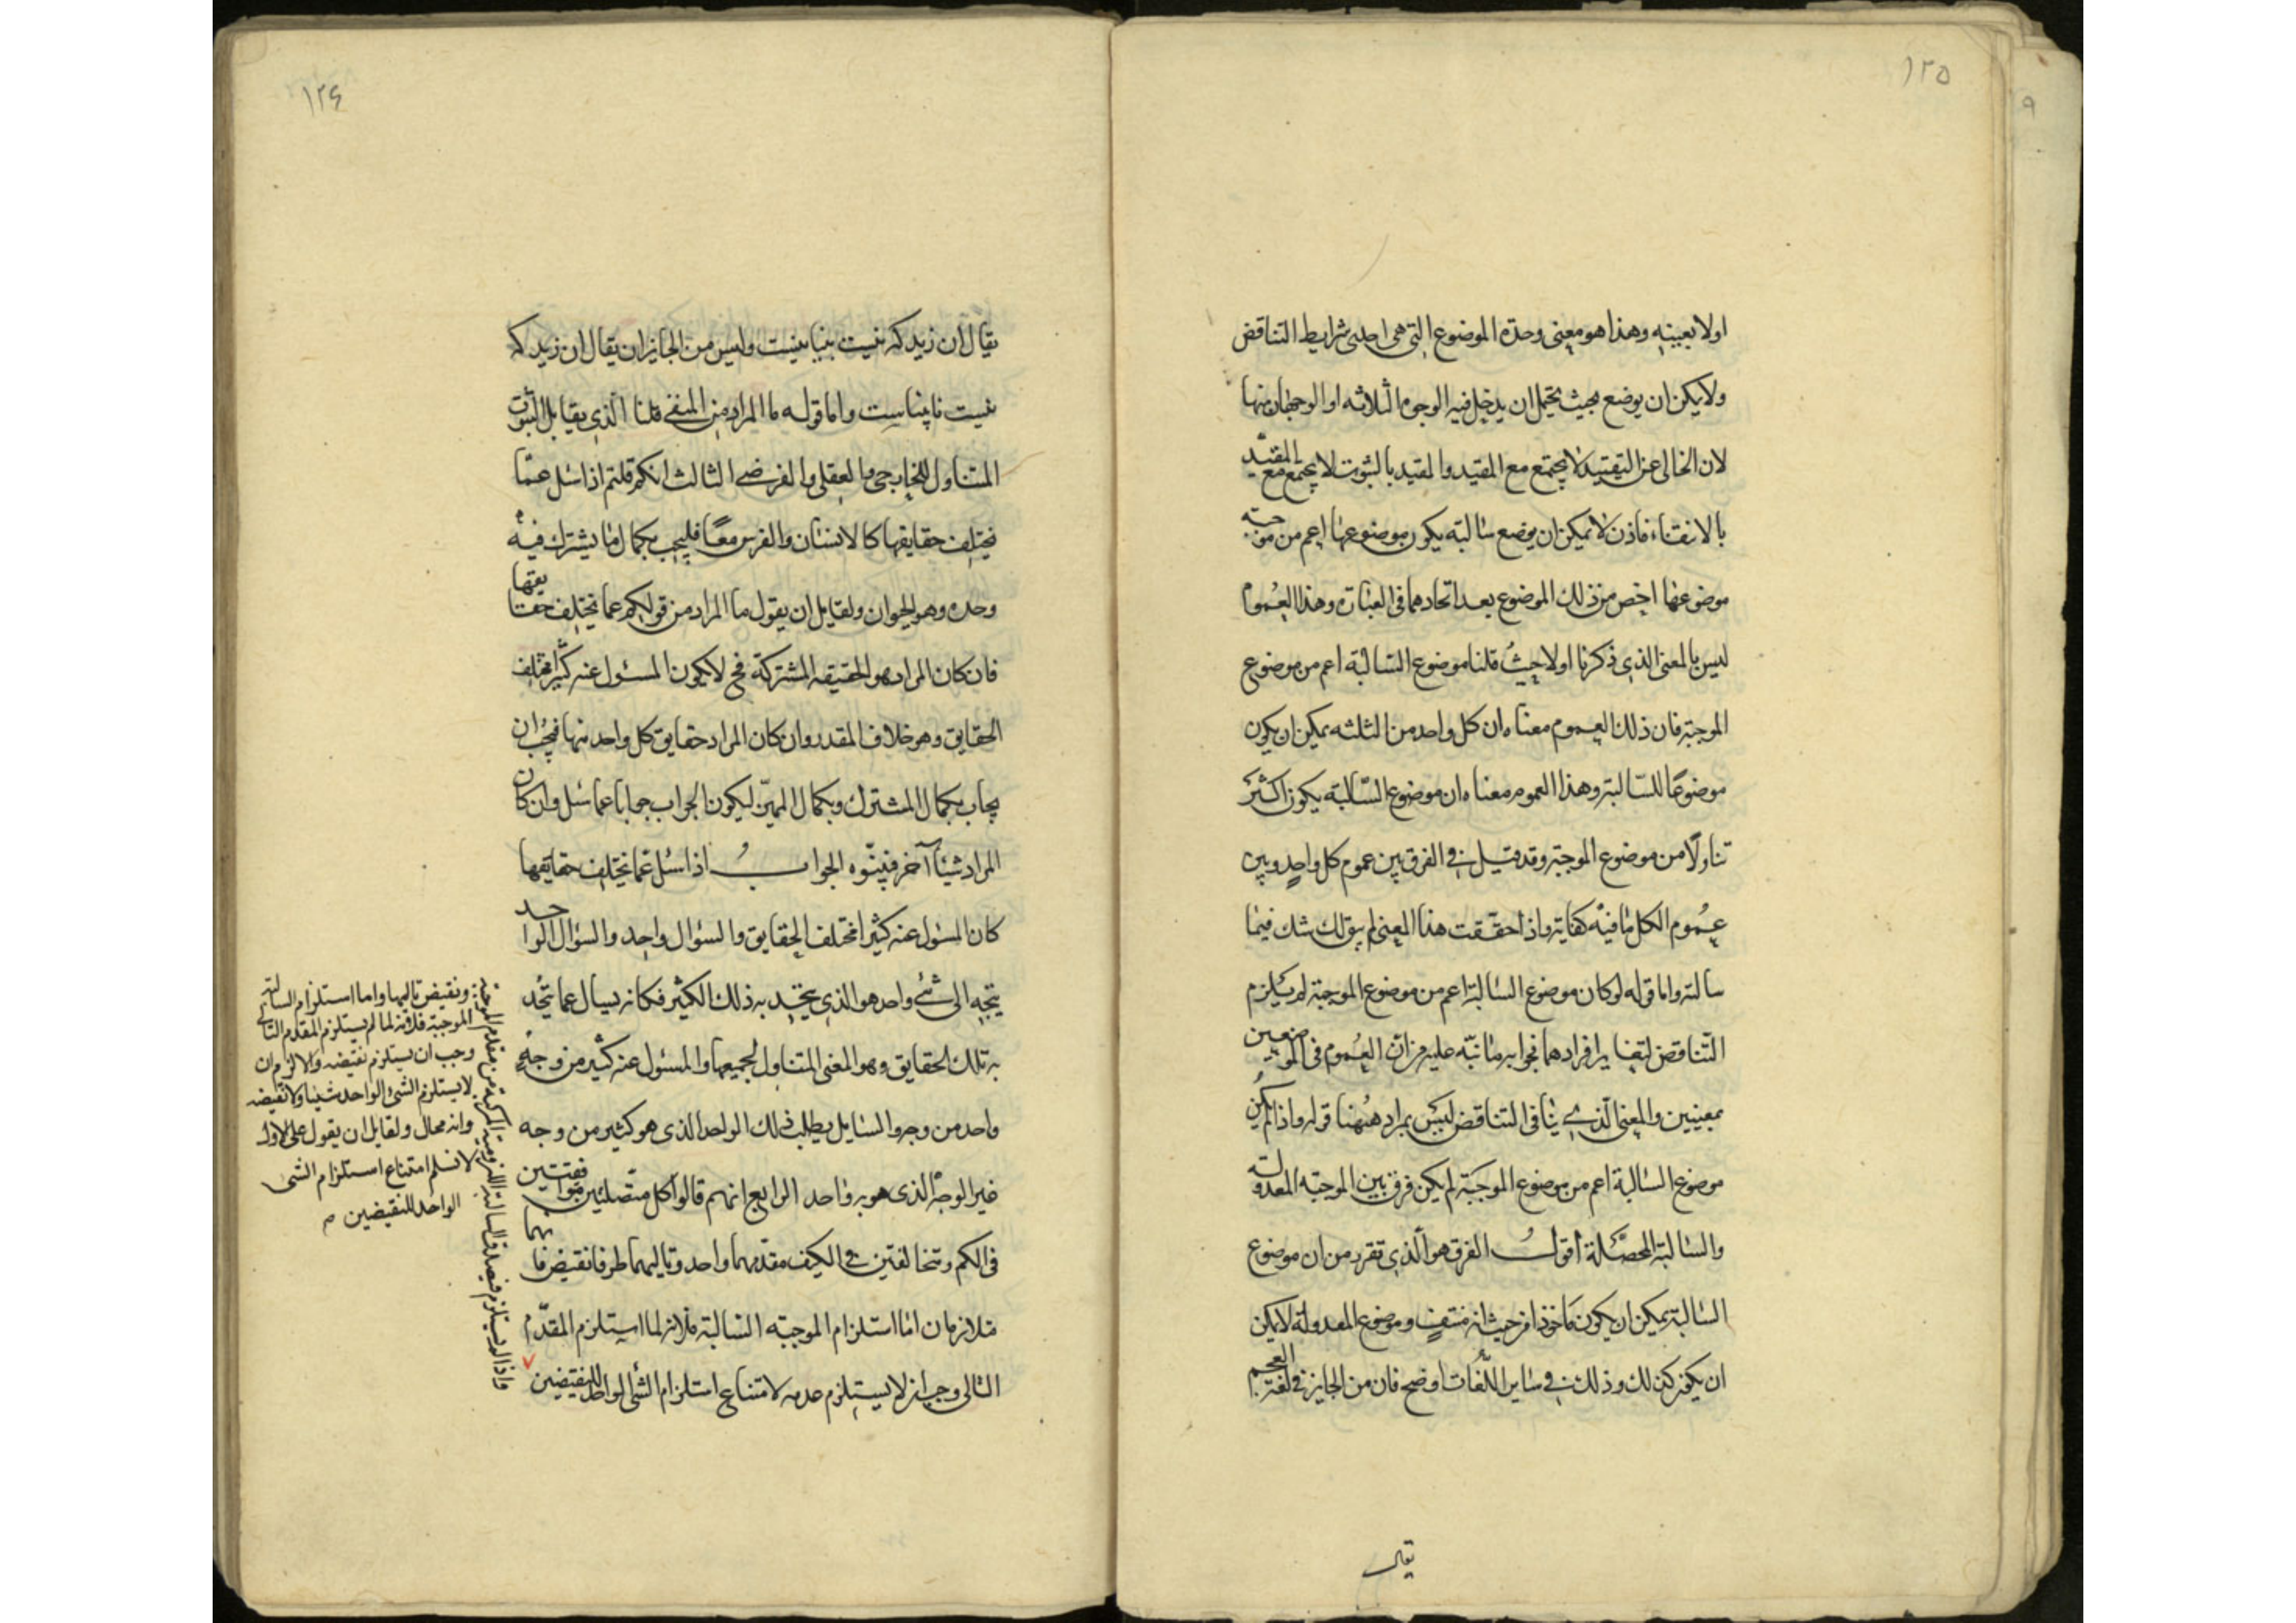 ١٢٥
٩
اولا بعينه وهذا هو معنى وحدة الموضوع التى هى احدى شرايط التناقض
ولا يمكن ان يوضع بحيث يحتمل ان يدخل فيه الوجوه الثلاثه او الوجهان منها
لان الخالى عن التقييد لا يجتمع مع المقيد والمقيد بالثبوت لا يجتمع مع المقيد
بالانتفاء فاذن لا يمكن ان يوضع سالبة يكون موضوعها اعم من موجبة
موضوعها اخص من ذلك الموضوع بعد اتحادهما فى العبارة وهذا العموم
ليس بالمعنى الذى ذكرنا اولا حيث قلنا موضوع السالبة اعم من موضوع
الموجبة فان ذلك العموم معناه ان كل واحد من الثلثه يمكن ان يكون
موضوعا للسالبة وهذا العموم معناه ان موضوع السالبة يكون اكثر
تناولا من موضوع الموجبة وقد قيل فى الفرق بين عموم كل واحد وبين
عموم الكل ما فيه كفاية واذا حققت هذا المعنى لم يبق لك شك فيما
سالته واما قوله لو كان موضوع السالبة اعم من موضوع الموجبة لم يلزم
التناقض لتغاير افرادهما فجوابه ما نبه عليه من ان العموم فى الموضعين
بمعنيين والمعنى الذى ينافى التناقض ليس بمراد ههنا قوله واذا لم يكن
موضوع السالبة اعم من موضوع الموجبة لم يكن فرق بين الموجبه المعدولة
والسالبة المحصلة اقول الفرق هو الذى تقرر من ان موضوع
السالبة يمكن ان يكون ماخوذا من حيث انه منتف وموضوع المعدولة لا يمكن
ان يكون كذلك وذلك فى ساير اللغات اوضح فان من الجايز فى لغة العجم
يقال
١٢٤
يقال ان زيد كه نيست بينا نيست وليس من الجايز ان يقال ان زيد كه
نيست نابيناست واما قوله ما المراد من المنفى قلنا الذى يقابل الثبوت
المتناول للخارجى والعقلى والفرضى الثالث انكم قلتم اذا سئل عما
يختلف حقايقها كالانسان والفرس معا فليجب بكمال ما يشترك فيه
وحده وهو الحيوان ولقايل ان يقول ما المراد من قولكم عما يختلف حقايقها
فان كان المراد هو الحقيقه المشتركة فح لا يكون المسئول عنه كثيرا مختلف
الحقايق وهو خلاف المقدر وان كان المراد حقايق كل واحد منها فيجب ان
يجاب بكمال المشترك وبكمال المميز ليكون الجواب جوابا عما سئل وان كان
المراد شيئا آخر فبينوه الجواب اذا سئل عما يختلف حقايقها
كان المسئول عنه كثيرا مختلف الحقايق والسؤال واحد والسؤال الواحد
يتجه الى شئ واحد هو الذى يتحد به ذلك الكثير فكانه يسال عما يتحد
به تلك الحقايق وهو المعنى المتناول لجميعها والمسئول عنه كثير من وجه
واحد من وجه والسايل يطلب ذلك الواحد الذى هو كثير من وجه
غير الوجه الذى هو به واحد الرابع انهم قالوا كل متصلتين متوافقتين
فى الكم ومتخالفتين فى الكيف مقدمهما واحد وتاليهما طرفا نقيض فانهما
متلازمان اما استلزام الموجبه السالبة فلانه لما استلزم المقدم
التالى وجب ان لا يستلزم عدمه لامتناع استلزام الشى الواحد للنقيضين
ونقيض تاليها واما استلزام السالبة
الموجبة فلانه لما لم يستلزم المقدم التالى
وجب ان يستلزم نقيضه والا لزم ان
لا يستلزم الشئ الواحد شيئا ولا نقيضه
وانه محال ولقايل ان يقول على الاول
لا نسلم امتناع استلزام الشى
الواحد للنقيضين